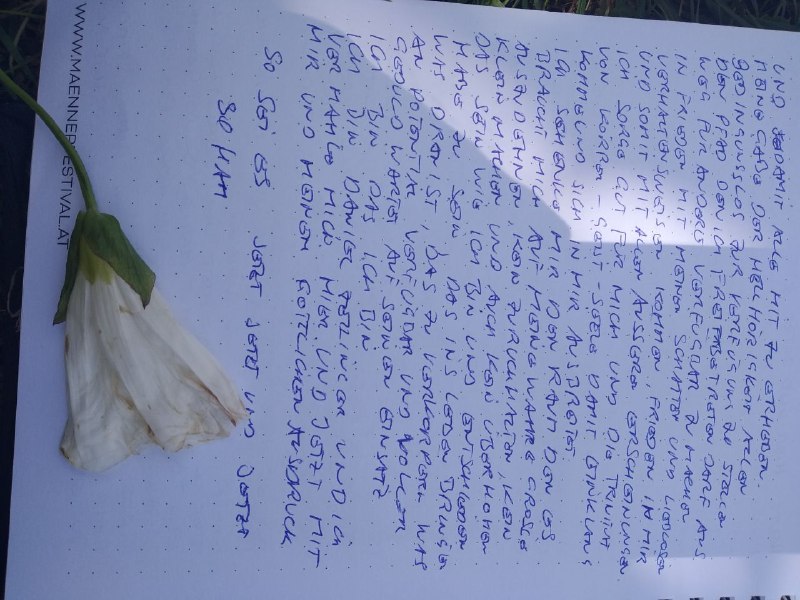 UND DAMIT ALLE MIT ZU ERHEBEN
MEINE GABE DER HELLHÖRIGKEIT ALLEN
BEDINGUNGSLOS ZUR VERFÜGUNG ZU STELLEN
DEN PFAD DEN ICH FREI BETRETEN DARF AUS
WEG FÜR ANDERE VERFÜGBAR ZU MACHEN
IN FRIEDEN MIT MEINEN SCHATTEN UND LIEBLOSEN
VERHALTENSWEISEN KOMMEN, FRIEDEN IN MIR
UND SOMIT MIT ALLEN AUSSERE ERSCHEINUNGEN
ICH SORGE GUT FÜR MICH UND DIE TRINITÄT
VON KÖRPER - GEIST - SEELE DAMIT EINKLANG
KOMME UND SICH IN MIR AUSBREITET
ICH SCHENKE MIR DEN RAUM DEN ES
BRAUCHT MICH AUF MEINE WAHRE GRÖSSE
AUSZUDEHNEN, KEIN ZURÜCKHALTEN, KEIN
KLEIN MACHEN UND AUCH KEIN ÜBERHÖHEN
DAS SEIN WIE ICH BIN UND ENTSCHIEDEN
HABE ZU SEIN DAS INS LEBEN BRINGEN
WAS DRAN IST, DAS ZU VERKÖRPERN WAS
AN POTENTIAL VERFÜGBAR UND VOLLER
GEDULD WARTET AUF SEINEN EINSATZ
ICH BIN DAS ICH BIN
ICH BIN DANIEL ZEILINGER UND ICH
VERMÄHLE MICH HIER UND JETZT MIT
MIR UND MEINEM GÖTTLICHEN AUSDRUCK
SO SEI ES JETZT JETZT UND JETZT
SO HAM
WWW.MAENNERFESTIVAL.AT